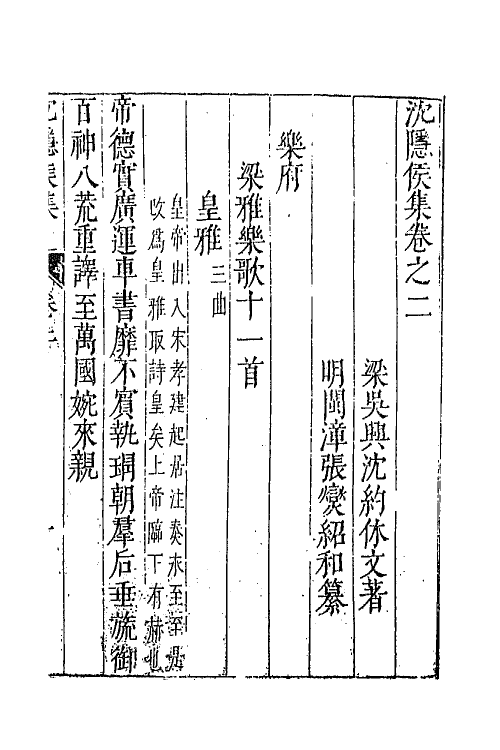 沈隱侯集卷之二
梁吳興沈約休文著
明閩漳張燮紹和纂
樂府
梁雅樂歌十一首
皇雅三曲
皇帝出入宋孝建起居注奏永至至是
改爲皇雅取詩皇矣上帝臨下有赫也
帝德實廣運車書靡不賔執瑁朝羣后垂旒御
百神八荒重譯至萬國婉來親
沈隱侯集 卷二 一